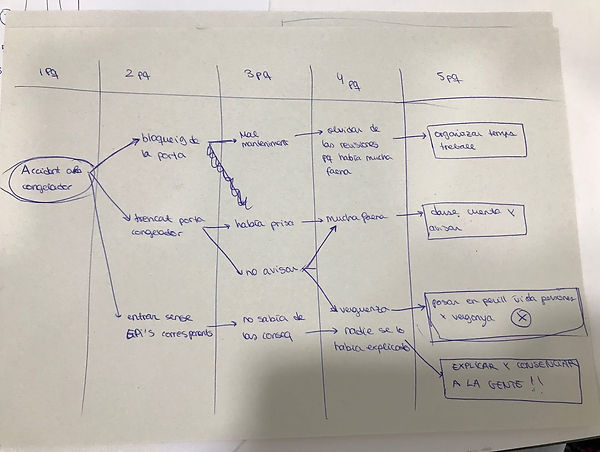 1 PQ
2 PQ
3 PQ
4 PQ
5 PQ
Accident amb
congelador
bloqueig de
la porta
Mal
manteniment
olvidar de
las revisiones
pq había mucha
faena
organizar temps
treball
trencat porta
congelador
había prisa
mucha faena
darse cuenta y
avisar
no avisar
verguenza
posar en perill vida persones
x vergonya
entrar sense
EPI's corresponents
no sabia de
las conseq
nadie se lo
había explicado
EXPLICAR Y CONSENCIAR
A LA GENTE !!